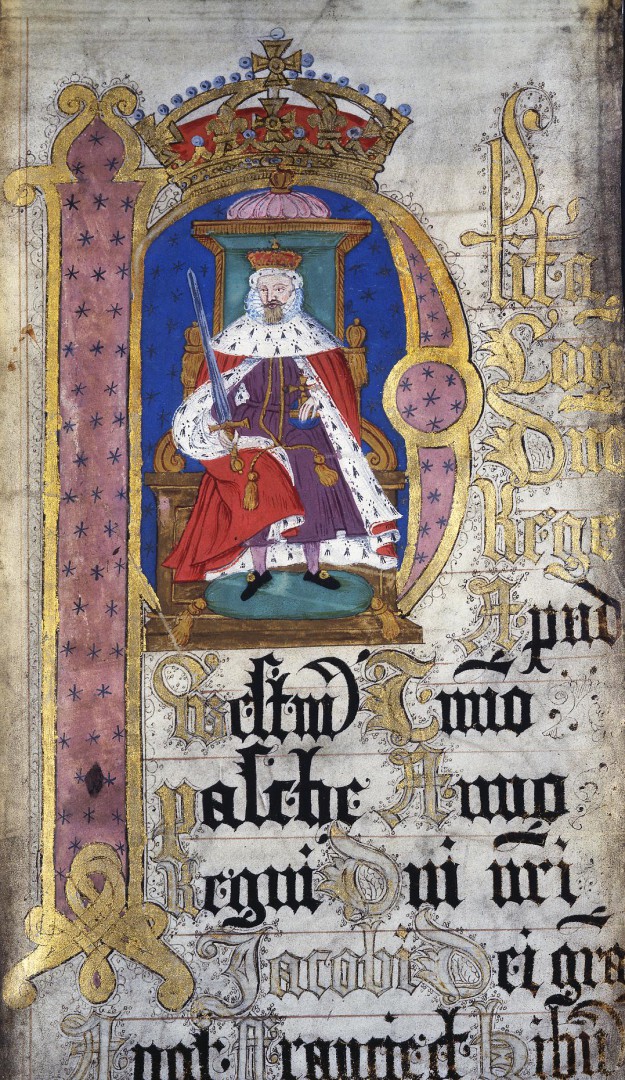 Plita
Cor
Dno
Rege
Apud
Westm̄ Tmīo
Pasche Anno
Regni Dni nr̄i
Jacobi Dei gra
Angl Francie et Hib